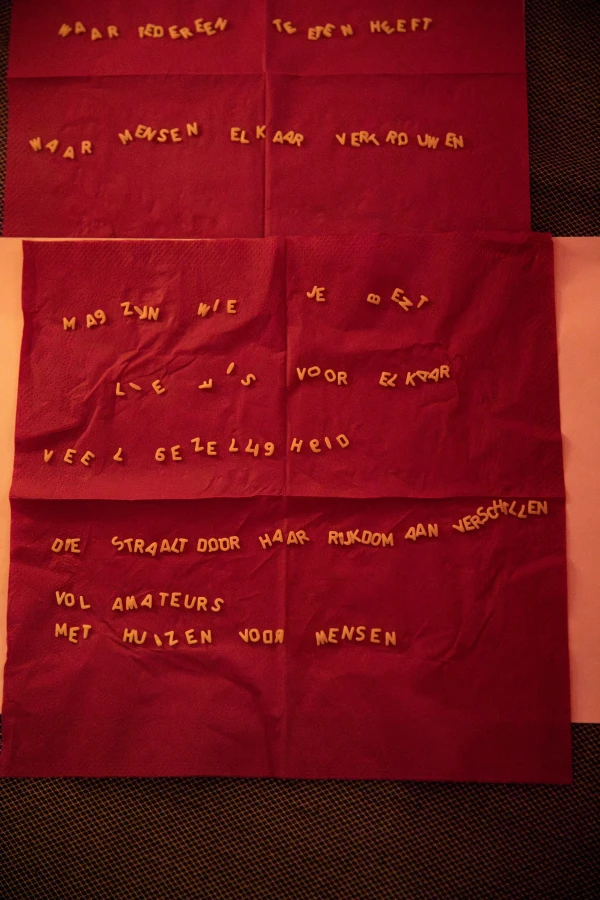 WAAR IEDEREEN TE ETEN HEEFT
WAAR MENSEN ELKAAR VERTROUWEN
MAG ZIJN WIE JE BENT
LIEF IS VOOR ELKAAR
VEEL GEZELLIGHEID
DIE STRAALT DOOR HAAR RIJKDOM AAN VERSCHILLEN
VOL AMATEURS
MET HUIZEN VOOR MENSEN